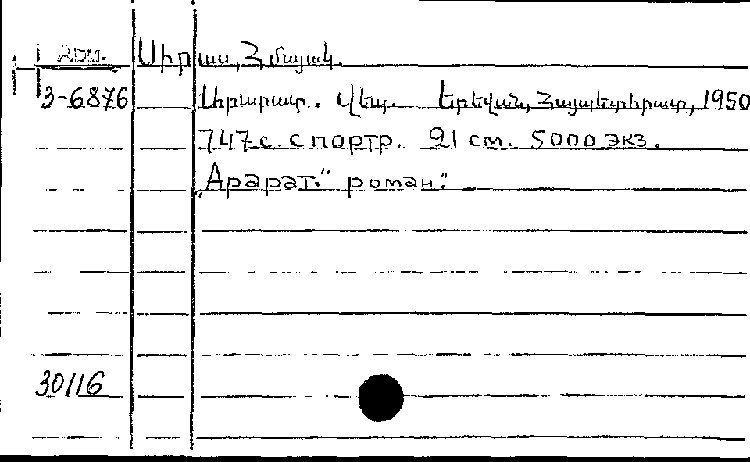 Սիրաս, Հմայակ.
3-6876 Արարատ. Վեպ. Երևան, Հայպետհրատ, 1950
747 с. с портр. 21 см. 5000 экз.
„Арарат." роман.
30116